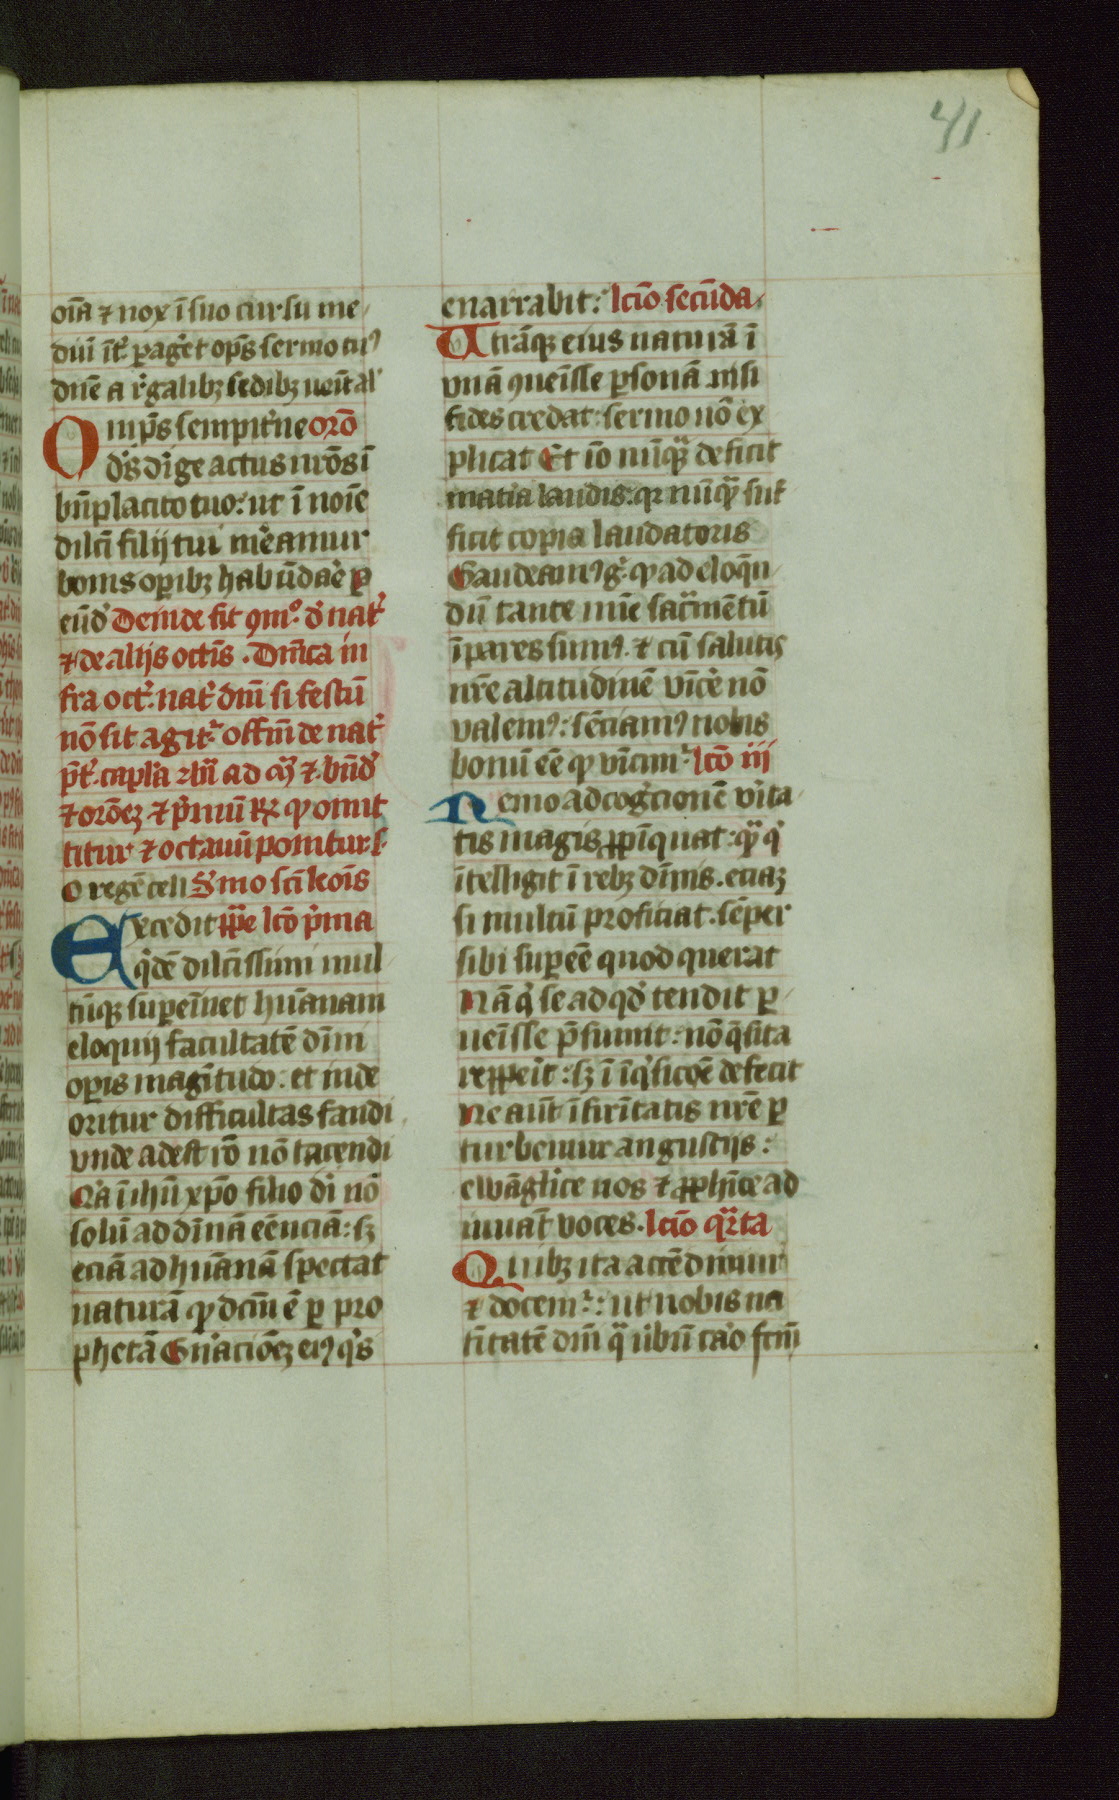 41
oīa ⁊ nox ī suo cursu me
diū it͛ ꝑag͛et op̄s sermo tuꝰ
dn̄e a r͛galibꝫ sedibꝫ
Om̄ps sempit͛ne orō
d͛s dīge actus nr̄os ī
bn̄placito tuo: ut ī noīe
dilc̄i filij tui m͛eamur
bonis oꝑibꝫ habūdar͛e ꝑ
eūd͛ Deinde fit ꝯmº. d͛ nat͛
⁊ de alijs octīs. Dn̄ica in
fra oct͛. nat͛ dn̄i si festū
nō sit agit͛ offm̄ de nat͛
⁊ orōeꝫ ⁊ p̄mū ꝶ ꝙ omit
titur ⁊ octauū ponitur. s.
O regē celi S͛mo sc̄i leōis
Excedit ꝑpe lc̄o p͛ma
q͛dē dilc̄issimi mul
tūqꝫ suꝑeīuet hūanam
eloquij facultatē dīni
oꝑis magītudo: et inde
oritur difficultas fandi
vnde adest rō nō tacendi
Q͛a ī ihū xp̄o filio dī nō
solū ad dīnā eēnciā: sꝫ
eciā ad hūanā spectat
naturā ꝙ dcm̄ ē ꝑ pro
phetā Gn͛aciōeꝫ eiꝰ q͛s
enarrabit: lc̄io secūda.
Utrāqꝫ eius naturā ī
vnā ꝯueīsse ꝑsonā nisi
fides credat: sermo nō ex
plicat Et iō nūqͣ deficit
mat͛ia laudis: qꝛ nūqͣ suf
ficit copia laudatoris
Gaudeamꝰ g͛. ꝙ ad eloq̄n
dū tante mīe sacͣmētū
īpares sumꝰ. ⁊ cū salutis
nr̄e altitudinē v̄ic͛e nō
valemꝰ: sēciamꝰ nobis
bonū eē ꝙ v̄icim͛ lc̄o iii
Nemo ad cog͛cionē v͛ita
tis magis ꝓpīquat: qͣ q͛
ītelligit ī rebꝫ dīnis. eciaꝫ
si multū proficiat. sēper
sibi suꝑeē quod querat
Nā q͛ se ad qd͛ tendit ꝑ
ueīsse p̄sumit: nō q̄sita
reꝑpeīt: sꝫ ī īq͛sicōe defecit
Ne aut̄ ī firītatis nr̄e ꝑ
turbemur angustijs:
ewāgl̄ice nos ⁊ ꝓph̄ice ad
iuuāt voces. lc̄io qͣrta
Quibꝫ ita accēdimur
⁊ docem͛: ut nobis na
tītatē dn̄i qͣ ūbū caro fcm̄